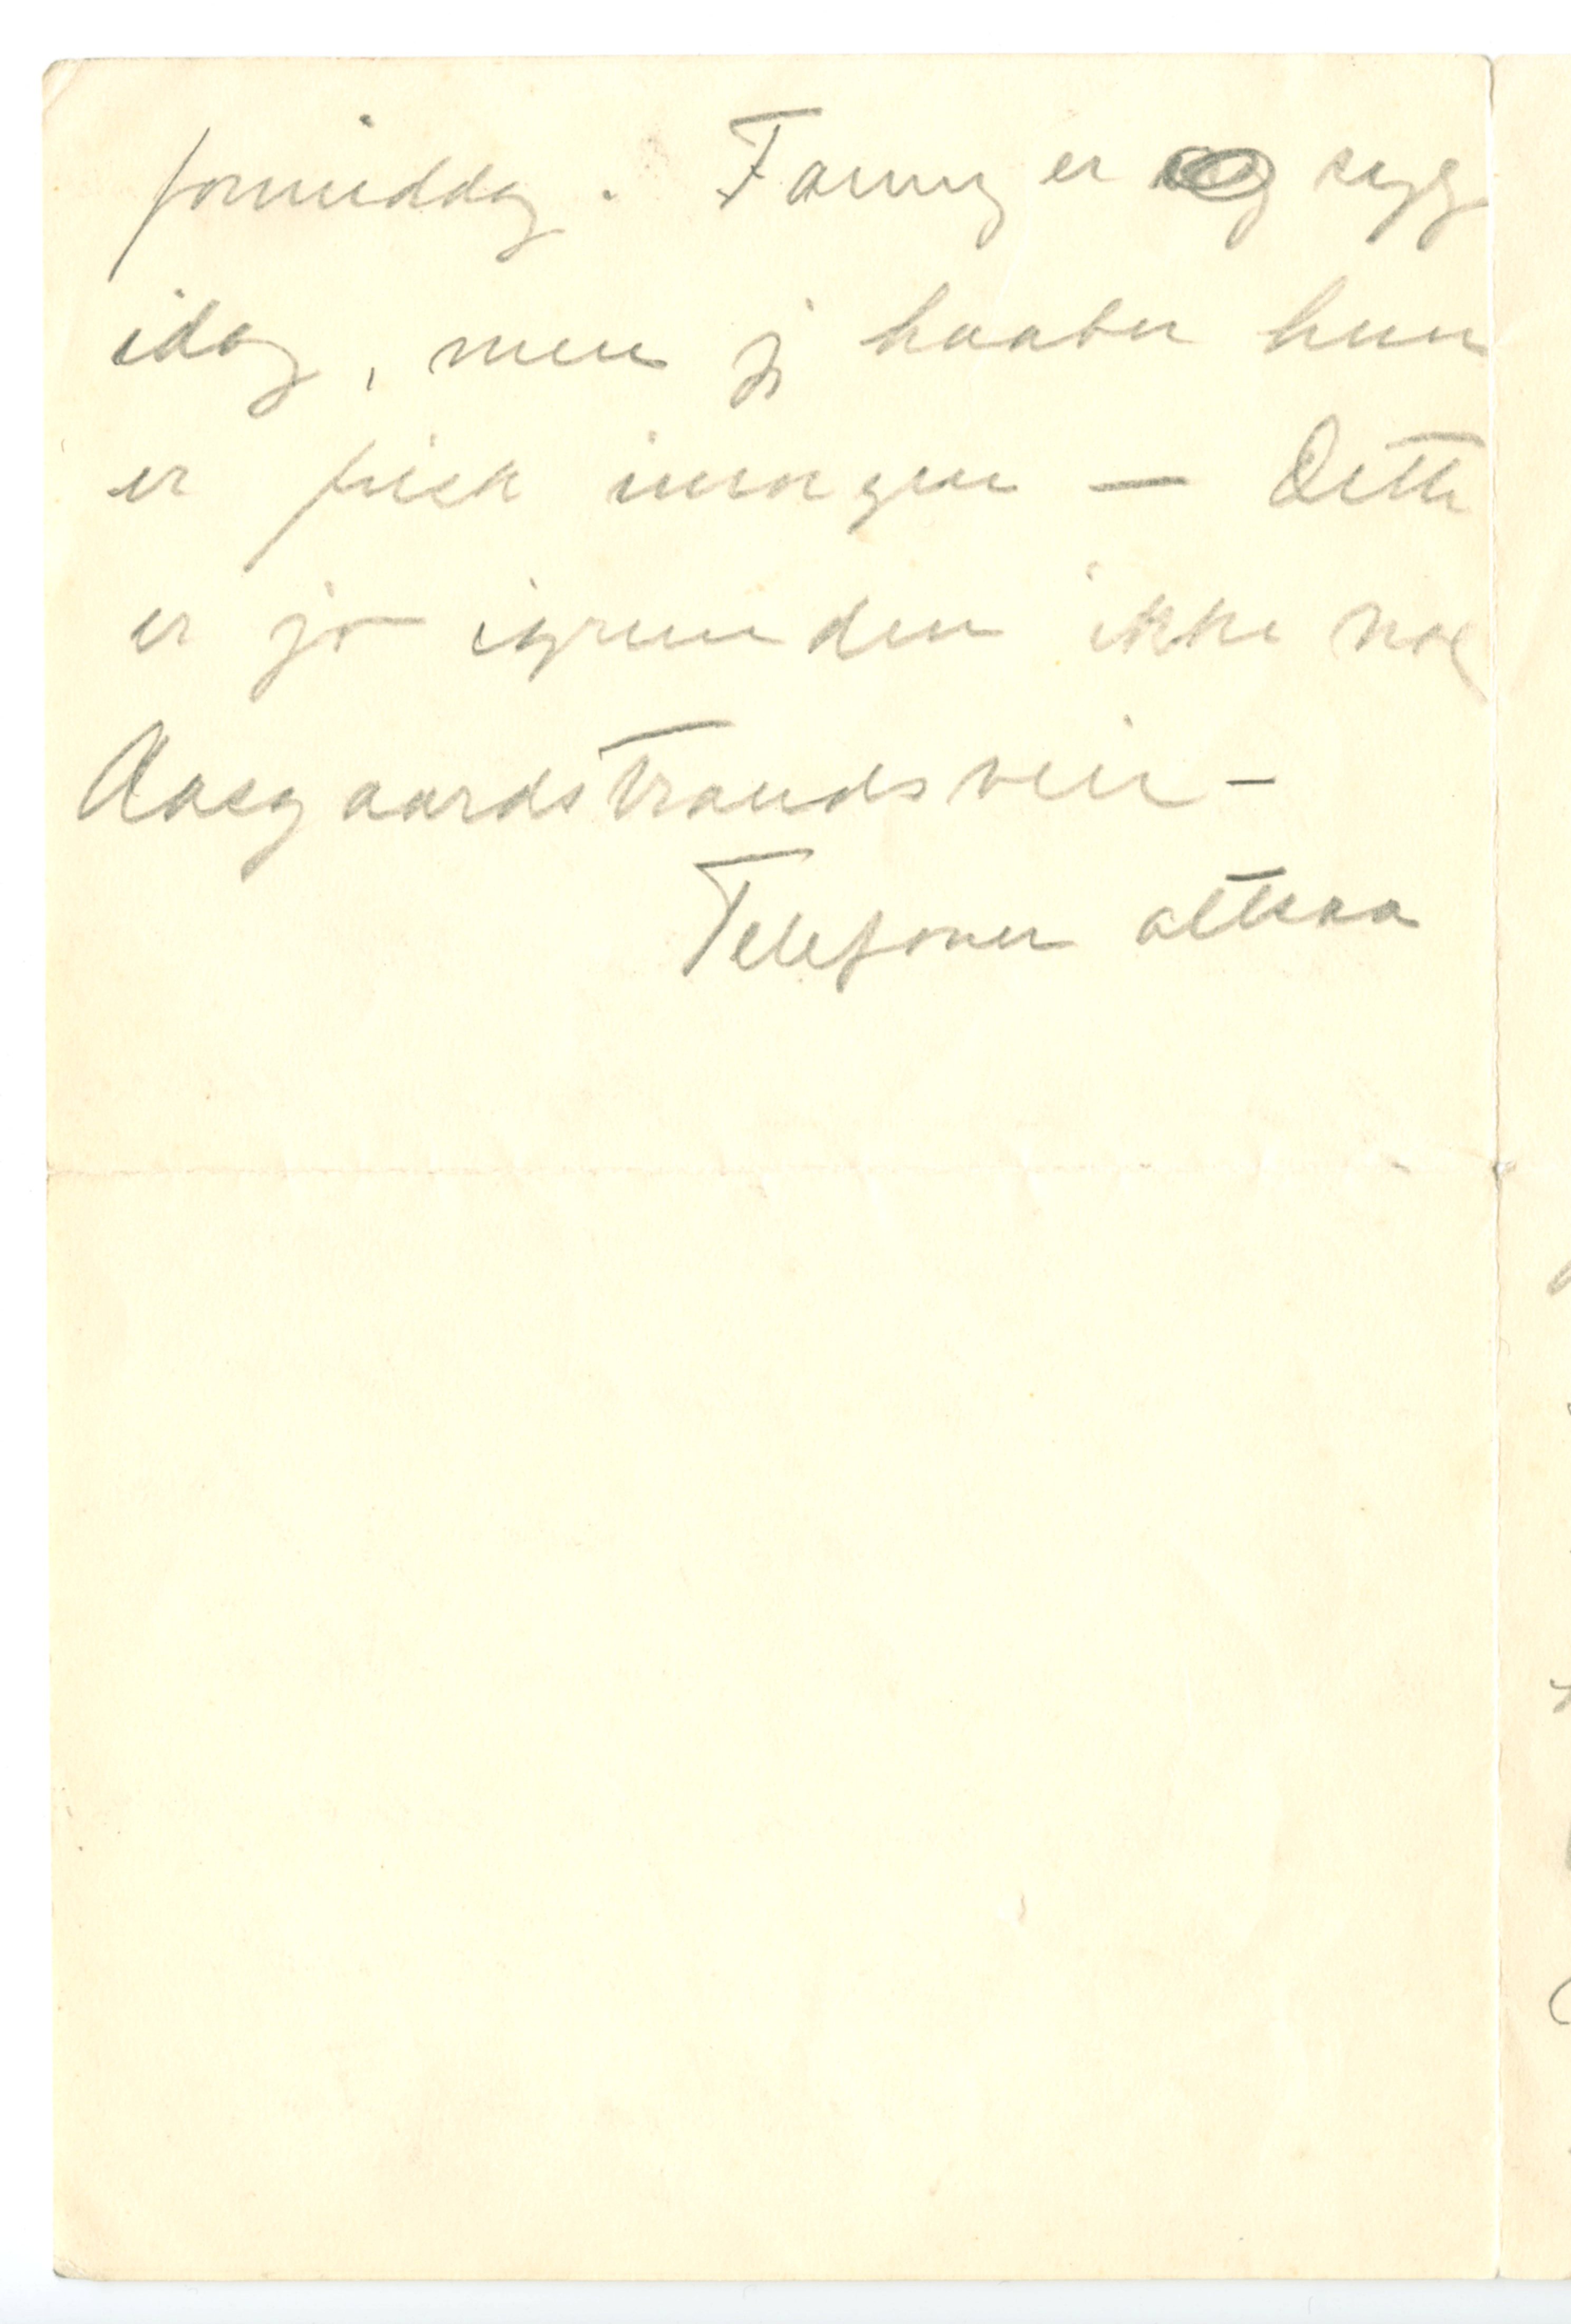 formiddag. Fanny er syg
idag, men jeg haaber hun
er frisk imorgen — Dette
er jo igrunden ikke noe
Aasgaardstrandsveir –
Telefoner altsaa